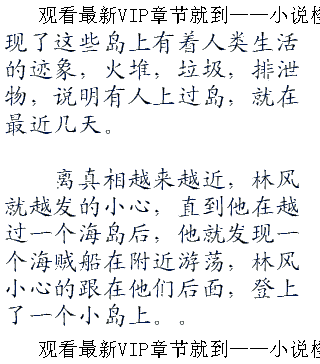 观看最新VIP章节就到——小说
现了这些岛上有着人类生活
的迹象，火堆，垃圾，排泄
物，说明有人上过岛，就在
最近几天。
离真相越来越近，林风
就越发的小心，直到他在越
过一个海岛后，他就发现一
个海贼船在附近游荡，林风
小心的跟在他们后面，登上
了一个小岛上。。
观看最新VIP章节就到——小说